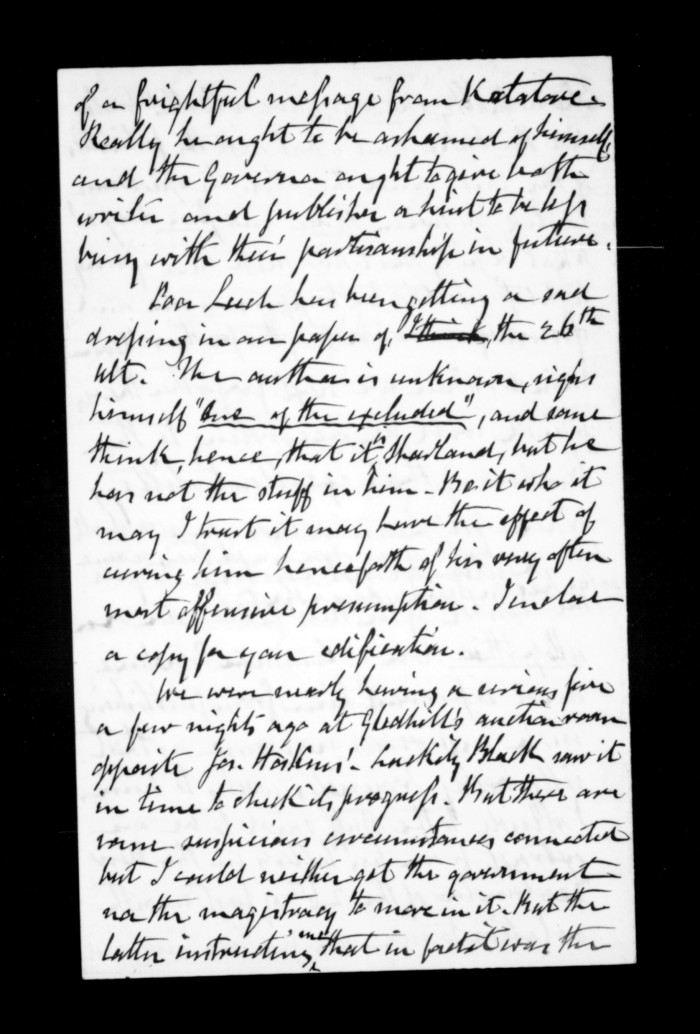 of a frightful message from Katatore.
Really he ought to be ashamed of himself,
and the Governor ought to give both
writer and publisher a hint to be less
busy with their partisanship in future.
Poor Leech has been getting a sad
dressing in our paper of, I think, the 26th
ult. The author is unknown, signs
himself "One of the excluded", and some
think, hence, that it is Shortland, but he
has not the stuff in him - Be it who it
may I trust it may have the effect of
curing him henceforth of his very often
most offensive presumption. I inclose
a copy for your edification.
We were nearly having a serious fire
a few nights ago at Gledhill's auction room
opposite Jos. Hoskins'. Luckily Black saw it
in time to check its progress. But there are
some suspicious circumstances connected
but I could neither get the government
nor the magistracy to move in it. But the
latter instructing me that in fact it was the